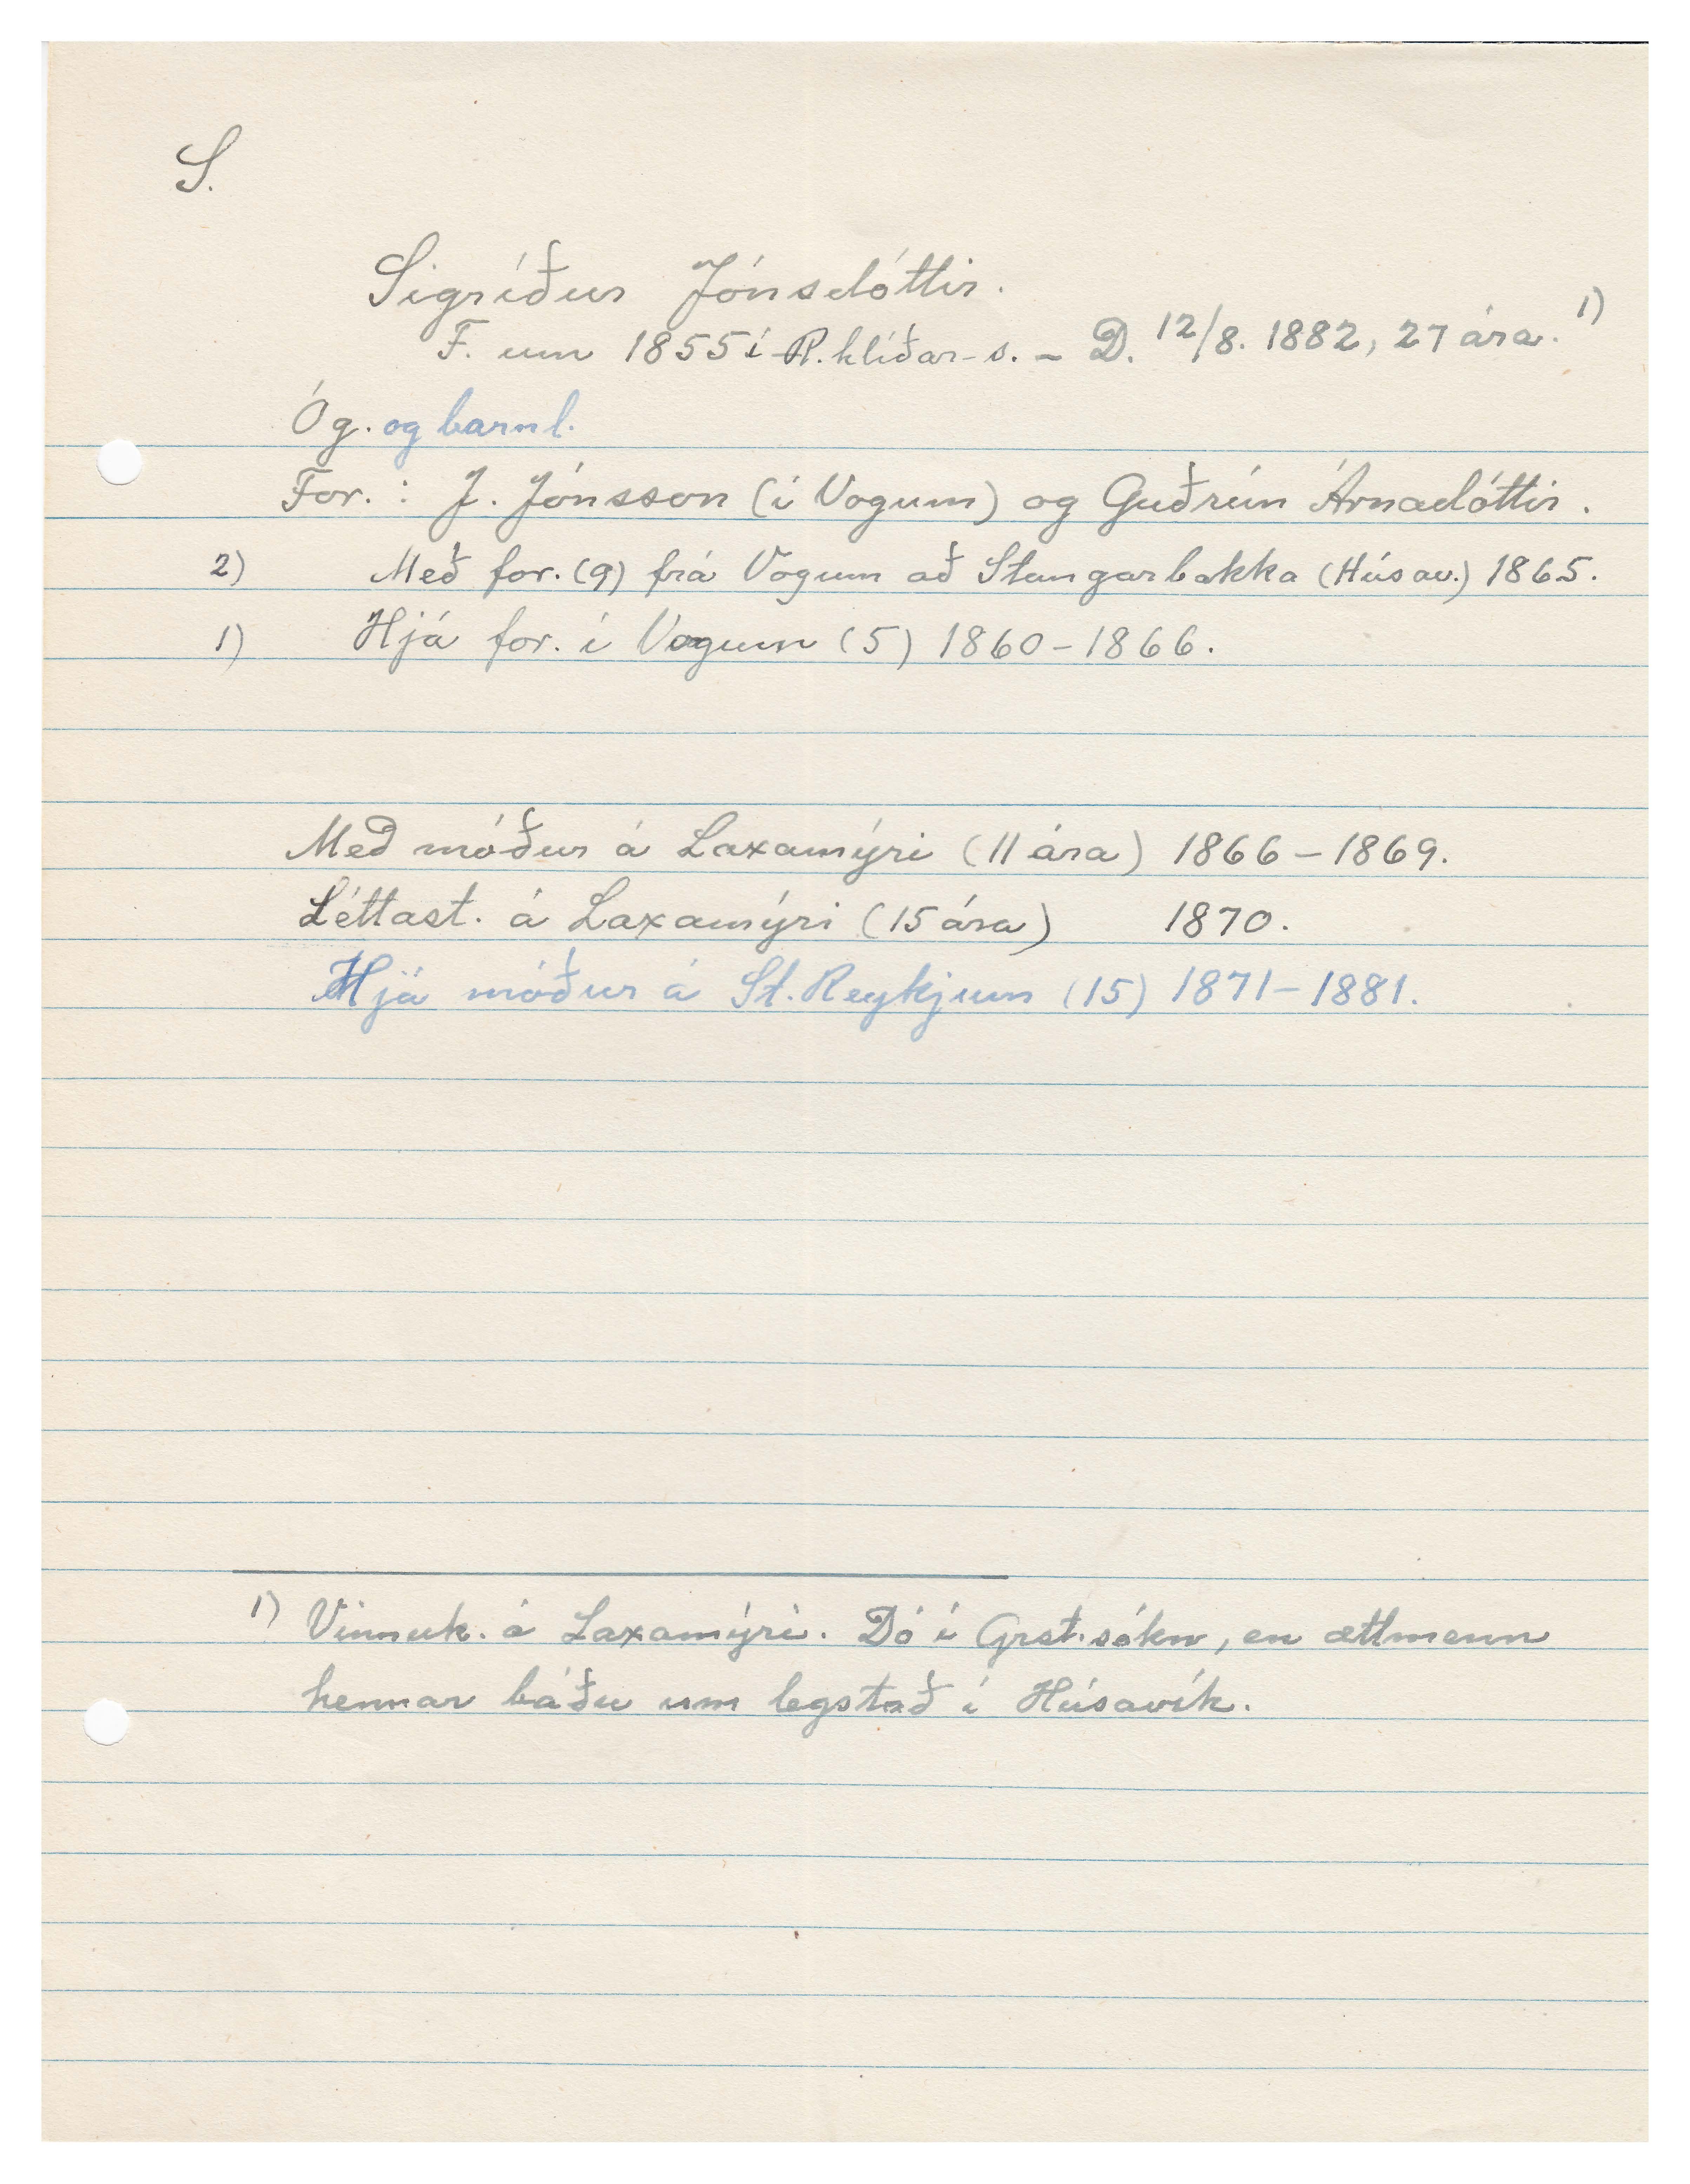 S.
Sigríður Jónsdóttir.
F. um 1855 í R.hlíðar-s. - D. 12/8. 1882, 27 ára. 1)
Óg. og barnl.
For. : J. Jónsson (í Vogum) og Guðrún Árnadóttir.
2) Með for. (9) frá Vogum að Stangarbakka (Húsav.) 1865.
1) Hjá for. í Vogum (5) 1860-1866.
Með móður á Laxamýri (11 ára) 1866-1869.
Léttast. á Laxamýri (15 ára) 1870.
Hjá móður á St. Reykjum (15) 1871-1881.
1) Vinnuk. á Laxamýri. Dó í Grst.sókn, en ættmenn
hennar báðu um legstað í Húsavík.